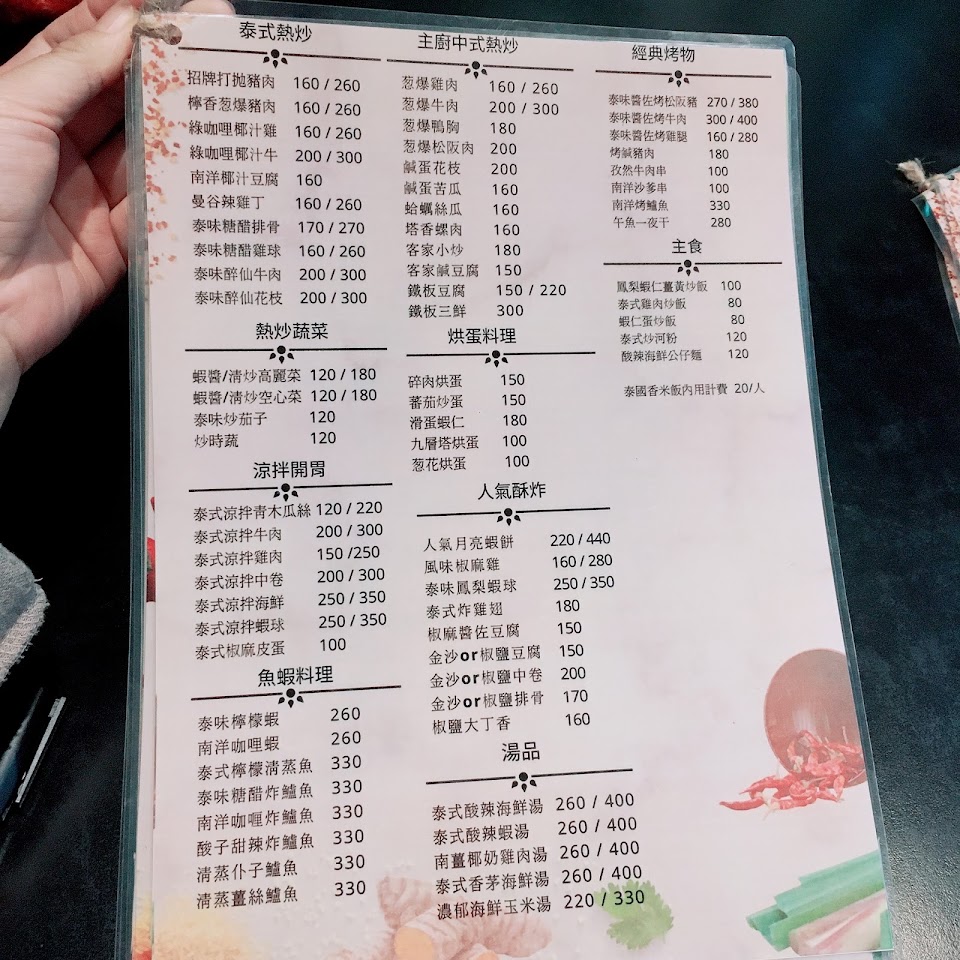 泰式熱炒
招牌打拋豬肉 160 / 260
檸香葱爆豬肉 160 / 260
綠咖哩椰汁雞 160 / 260
綠咖哩椰汁牛 200 / 300
南洋椰汁豆腐 160
曼谷辣雞丁 160 / 260
泰味糖醋排骨 170 / 270
泰味糖醋雞球 160 / 260
泰味醉仙牛肉 200 / 300
泰味醉仙花枝 200 / 300
熱炒蔬菜
蝦醬/清炒高麗菜 120 / 180
蝦醬/清炒空心菜 120 / 180
泰味炒茄子 120
炒時蔬 120
涼拌開胃
泰式涼拌青木瓜絲 120 / 220
泰式涼拌牛肉 200 / 300
泰式涼拌雞肉 150 /250
泰式涼拌中卷 200 / 300
泰式涼拌海鮮 250 / 350
泰式涼拌蝦球 250 / 350
泰式椒麻皮蛋 100
魚蝦料理
泰味檸檬蝦 260
南洋咖哩蝦 260
泰式檸檬清蒸魚 330
泰味糖醋炸鱸魚 330
南洋咖喱炸鱸魚 330
酸子甜辣炸鱸魚 330
清蒸仆子鱸魚 330
清蒸薑絲鱸魚 330
主廚中式熱炒
葱爆雞肉 160 / 260
葱爆牛肉 200 / 300
葱爆鴨胸 180
葱爆松阪肉 200
鹹蛋花枝 200
鹹蛋苦瓜 160
蛤蠣絲瓜 160
塔香螺肉 160
客家小炒 180
客家鹹豆腐 150
鐵板豆腐 150 / 220
鐵板三鮮 300
烘蛋料理
碎肉烘蛋 150
蕃茄炒蛋 150
滑蛋蝦仁 180
九層塔烘蛋 100
葱花烘蛋 100
人氣酥炸
人氣月亮蝦餅 220 / 440
風味椒麻雞 160 / 280
泰味鳳梨蝦球 250 / 350
泰式炸雞翅 180
椒麻醬佐豆腐 150
金沙or椒鹽豆腐 150
金沙or椒鹽中卷 200
金沙or椒鹽排骨 170
椒鹽大丁香 160
湯品
泰式酸辣海鮮湯 260 / 400
泰式酸辣蝦湯 260 / 400
南薑椰奶雞肉湯 260 / 400
泰式香茅海鮮湯 260 / 400
濃郁海鮮玉米湯 220 / 330
經典烤物
泰味醬佐烤松阪豬 270 / 380
泰味醬佐烤牛肉 300 / 400
泰味醬佐烤雞腿 160 / 280
烤鹹豬肉 180
孜然牛肉串 100
南洋沙爹串 100
南洋烤鱸魚 330
午魚一夜干 280
主食
鳳梨蝦仁薑黃炒飯 100
泰式雞肉炒飯 80
蝦仁蛋炒飯 80
泰式炒河粉 120
酸辣海鮮公仔麵 120
泰國香米飯內用計費 20/人